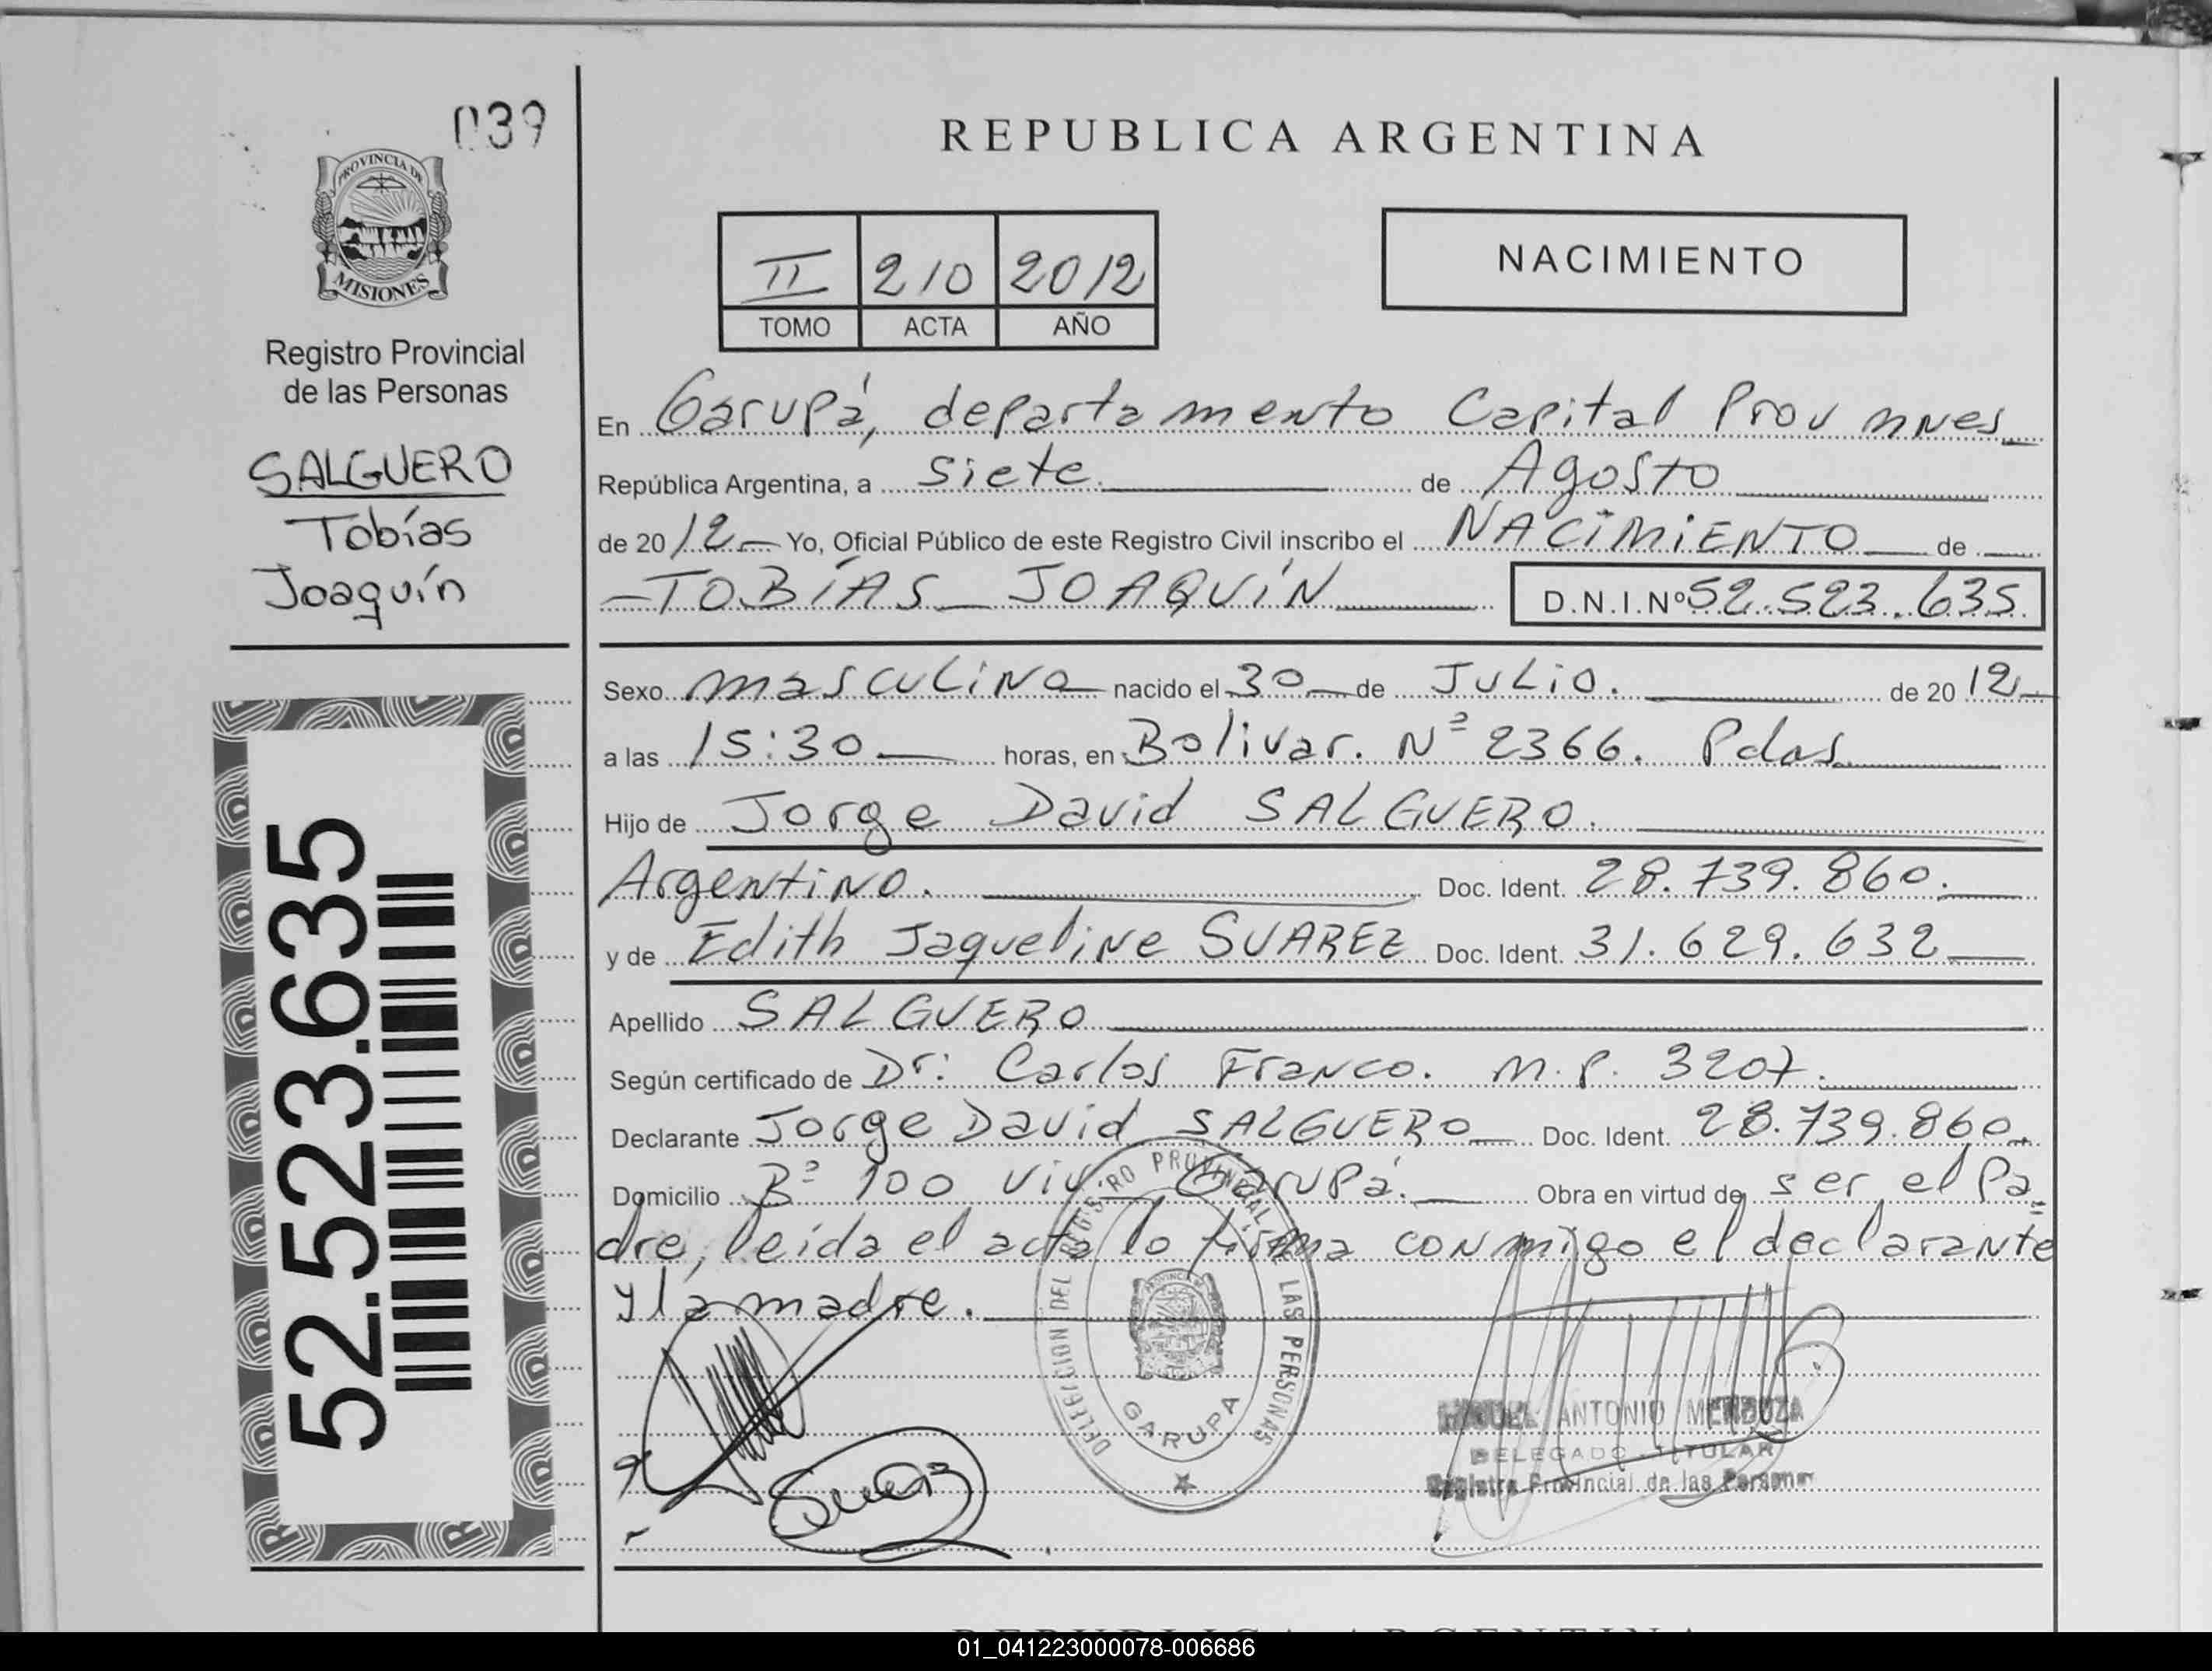 039
PROVINCIA DE
MISIONES
Registro Provincial
de las Personas
SALGUERO
Tobías
Joaquín
52.523.635
REPUBLICA ARGENTINA
II 210 2012
TOMO ACTA AÑO
NACIMIENTO
En Garupá, departamento Capital Prov Mnes
República Argentina, a siete de Agosto
de 2012 Yo, Oficial Público de este Registro Civil inscribo el NACIMIENTO de
TOBÍAS JOAQUÍN D.N.I.Nº 52.523.635
Sexo masculino nacido el 30 de Julio. de 2012
a las 15:30 horas, en Bolivar. Nº 2366. Pdas
Hijo de Jorge David SALGUERO.
Argentino. Doc. Ident. 28.739.860.
y de Edith Jaqueline SUAREZ Doc. Ident. 31.629.632
Apellido SALGUERO
Según certificado de Dr: Carlos Franco. M.P. 3207.
Declarante Jorge David SALGUERO Doc. Ident. 28.739.860.
Domicilio Bº 100 Viv. Garupá. Obra en virtud de ser el Pa=
dre, leída el acta lo firma conmigo el declarante
y la madre.
DELEGACION DEL REGISTRO PROVINCIAL DE LAS PERSONAS
GARUPA
Suarez
MIGUEL ANTONIO MENDOZA
DELEGADO TITULAR
Registro Provincial de las Personas
REPUBLICA ARGENTINA
01_041223000078-006686